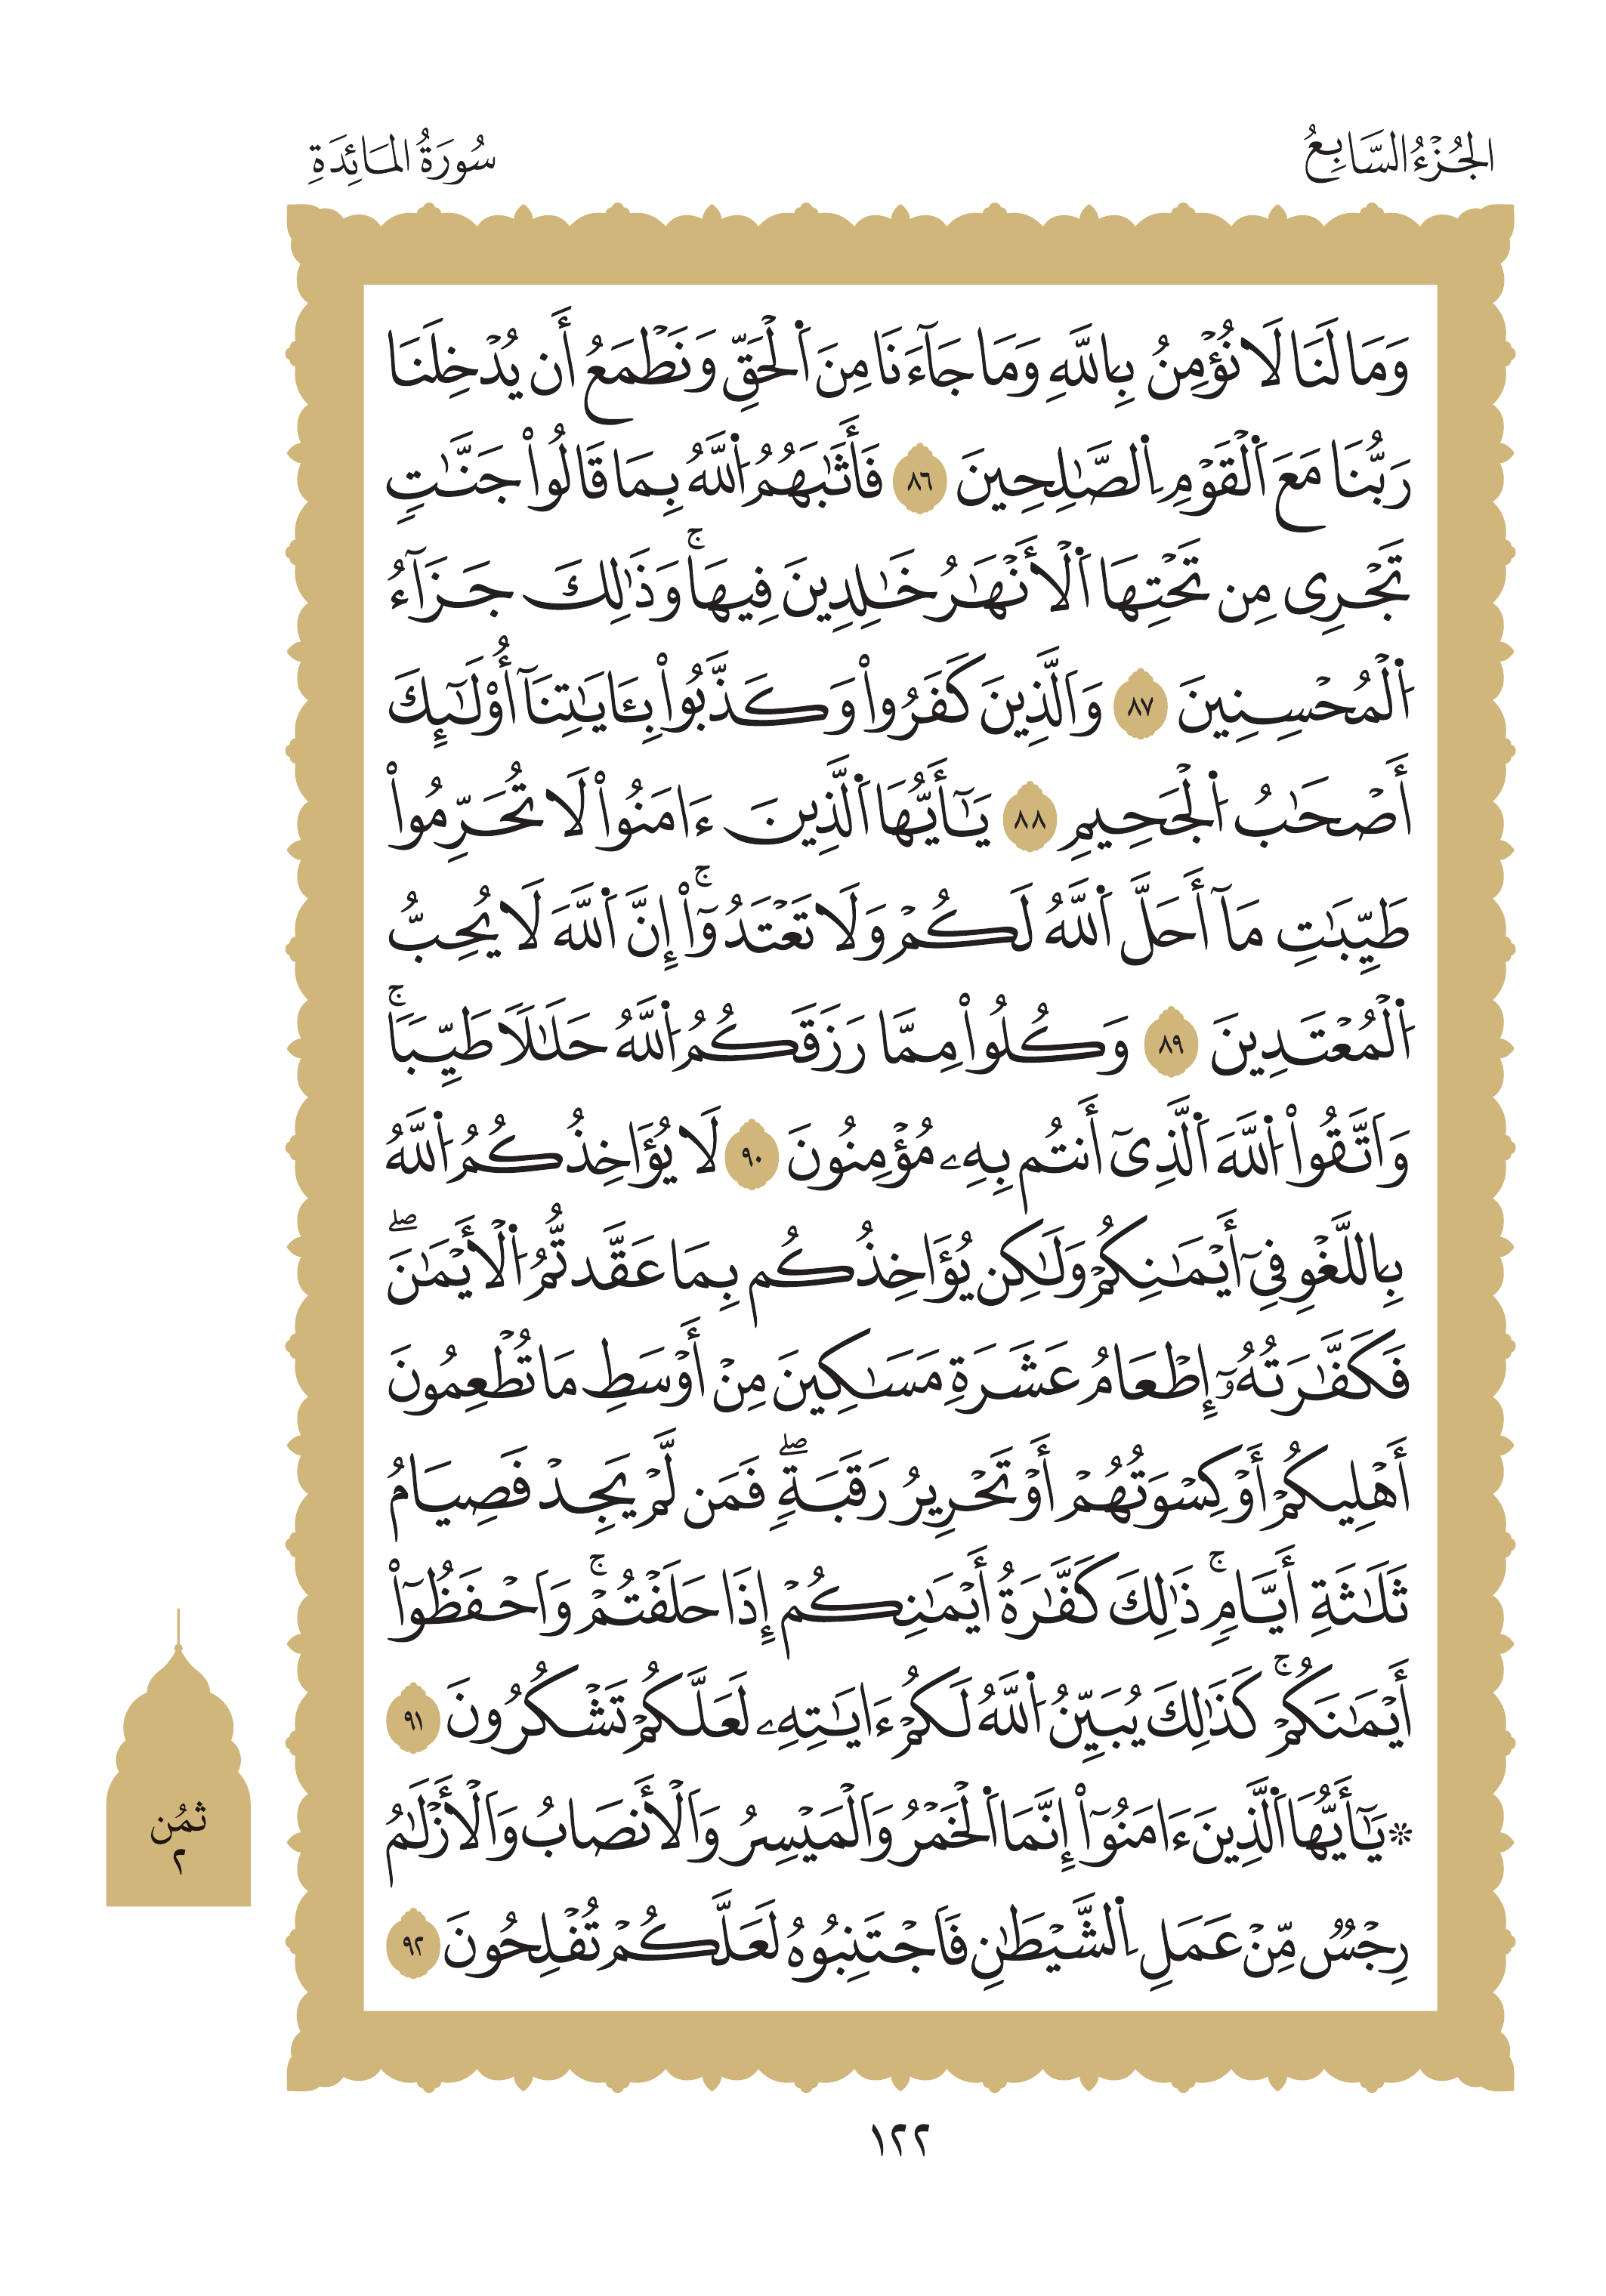 الجُزْءُ السَّابِعُ
سُورَةُ المَائِدَةِ
وَمَا لَنَا لَا نُؤْمِنُ بِاللَّهِ وَمَا جَآءَنَا مِنَ اَ۬لْحَقِّ وَنَطْمَعُ أَن يُدْخِلَنَا
رَبُّنَا مَعَ اَ۬لْقَوْمِ اِ۬لصَّٰلِحِينَ ٨٦ فَأَثَٰبَهُمُ اُ۬للَّهُ بِمَا قَالُواْ جَنَّٰتٖ
تَجْرِى مِن تَحْتِهَا اَ۬لْأَنْهَٰرُ خَٰلِدِينَ فِيهَاۚ وَذَٰلِكَ جَزَآءُ
اُ۬لْمُحْسِنِينَ ٨٧ وَاَلَّذِينَ كَفَرُواْ وَكَذَّبُواْ بِـَٔايَٰتِنَآ أُوْلَٰٓئِكَ
أَصْحَٰبُ اُ۬لْجَحِيمِ ٨٨ يَٰٓأَيُّهَا اَ۬لَّذِينَ ءَامَنُواْ لَا تُحَرِّمُواْ
طَيِّبَٰتِ مَآ أَحَلَّ اَ۬للَّهُ لَكُمْ وَلَا تَعْتَدُوٓاْۚ إِنَّ اَ۬للَّهَ لَا يُحِبُّ
اُ۬لْمُعْتَدِينَ ٨٩ وَكُلُواْ مِمَّا رَزَقَكُمُ اُ۬للَّهُ حَلَٰلٗا طَيِّبٗاۚ
وَاَتَّقُواْ اُ۬للَّهَ اَ۬لَّذِىٓ أَنتُم بِهِۦ مُؤْمِنُونَ ٩٠ لَا يُؤَاخِذُكُمُ اُ۬للَّهُ
بِاللَّغْوِ فِىٓ أَيْمَٰنِكُمْ وَلَٰكِن يُؤَاخِذُكُم بِمَا عَقَّدتُّمُ اُ۬لْأَيْمَٰنَۖ
فَكَفَّٰرَتُهُۥٓ إِطْعَامُ عَشَرَةِ مَسَٰكِينَ مِنْ أَوْسَطِ مَا تُطْعِمُونَ
أَهْلِيكُمْ أَوْ كِسْوَتُهُمْ أَوْ تَحْرِيرُ رَقَبَةٖۖ فَمَن لَّمْ يَجِدْ فَصِيَامُ
ثَلَٰثَةِ أَيَّامٖۚ ذَٰلِكَ كَفَّٰرَةُ أَيْمَٰنِكُمْ إِذَا حَلَفْتُمْۚ وَاَحْفَظُوٓاْ
أَيْمَٰنَكُمْۚ كَذَٰلِكَ يُبَيِّنُ اُ۬للَّهُ لَكُمْ ءَايَٰتِهِۦ لَعَلَّكُمْ تَشْكُرُونَ ٩١
۞ يَٰٓأَيُّهَا اَ۬لَّذِينَ ءَامَنُوٓاْ إِنَّمَا اَ۬لْخَمْرُ وَاَلْمَيْسِرُ وَاَلْأَنصَابُ وَاَلْأَزْلَٰمُ
رِجْسٞ مِّنْ عَمَلِ اِ۬لشَّيْطَٰنِ فَاَجْتَنِبُوهُ لَعَلَّكُمْ تُفْلِحُونَ ٩٢
ثمُن
٢
١٢٢